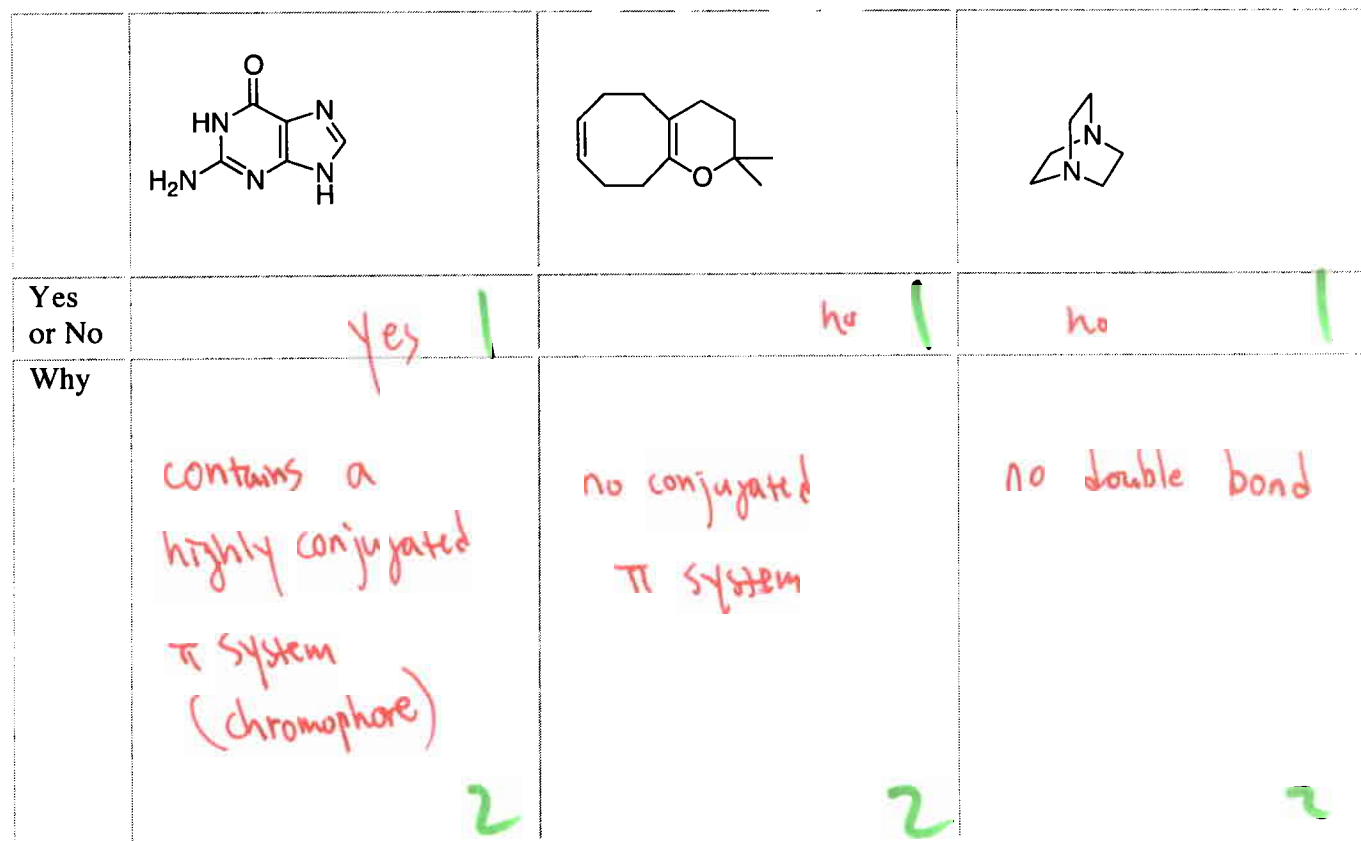 O
HN
N
H₂N
N
N
H
O
N
N
Yes
or No
Yes
1
no
1
no
1
Why
contains a
highly conjugated
π system
(chromophore)
2
no conjugated
π system
2
no double bond
2